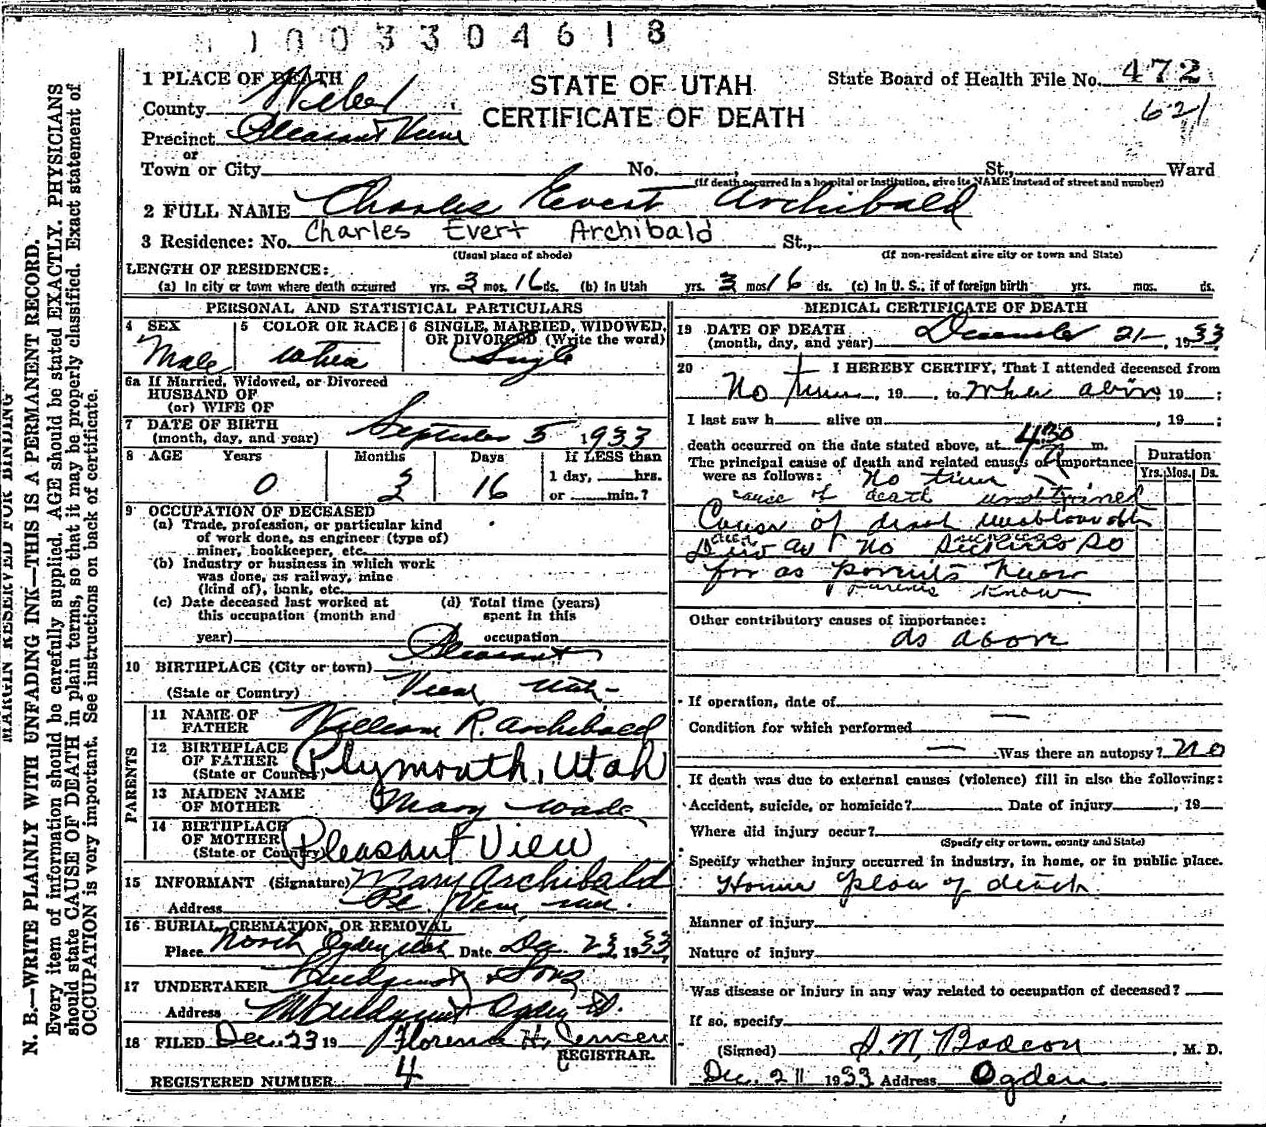 1003304618
1 PLACE OF DEATH
STATE OF UTAH
CERTIFICATE OF DEATH
State Board of Health File No. 472
621
County Weber
Precinct Pleasant View
or
Town or City No. St., Ward
(If death occurred in a hospital or institution, give its NAME instead of street and number)
2 FULL NAME Charles Evert Archibald
3 Residence: No. Charles Evert Archibald St.,
(Usual place of abode) (If non-resident give city or town and State)
LENGTH OF RESIDENCE:
(a) In city or town where death occurred yrs. 3 mos. 16 ds. (b) In Utah yrs. 3 mos 16 ds. (c) In U. S., if of foreign birth yrs. mos. ds.
PERSONAL AND STATISTICAL PARTICULARS
4 SEX Male
5 COLOR OR RACE white
6 SINGLE, MARRIED, WIDOWED, OR DIVORCED (Write the word) Single
6a If Married, Widowed, or Divorced
HUSBAND OF
(or) WIFE OF
7 DATE OF BIRTH
(month, day, and year) September 5 1933
8 AGE Years Months Days If LESS than
0 3 16 1 day, hrs.
or min.?
9 OCCUPATION OF DECEASED
(a) Trade, profession, or particular kind
of work done, as engineer (type of)
miner, bookkeeper, etc.
(b) Industry or business in which work
was done, as railway, mine
(kind of), bank, etc.
(c) Date deceased last worked at
this occupation (month and
year)
(d) Total time (years)
spent in this
occupation
10 BIRTHPLACE (City or town) Pleasant
(State or Country) View Utah
PARENTS
11 NAME OF
FATHER William R. Archibald
12 BIRTHPLACE
OF FATHER
(State or Country) Plymouth, Utah
13 MAIDEN NAME
OF MOTHER Mary Wade
14 BIRTHPLACE
OF MOTHER
(State or Country) Pleasant View
15 INFORMANT (Signature) Mary Archibald
Address Pl View,
16 BURIAL, CREMATION, OR REMOVAL
Place North Ogden Utah Date Dec. 23, 1933
17 UNDERTAKER & Sons
Address Ogden
18 FILED Dec. 23 19 Florence H.
REGISTRAR.
REGISTERED NUMBER 4
MEDICAL CERTIFICATE OF DEATH
19 DATE OF DEATH
(month, day, and year) December 21 1933
20 I HEREBY CERTIFY, That I attended deceased from
No time, 19 , to 19 ;
I last saw h alive on , 19 ;
death occurred on the date stated above, at 4:30 m.
The principal cause of death and related causes of importance
were as follows: No time
Duration
Yrs. Mos. Ds.
cause of death
Cause of death
died
as no sickness so
for as parents know
Parents know
Other contributory causes of importance:
as above
If operation, date of
Condition for which performed —
— Was there an autopsy? no
If death was due to external causes (violence) fill in also the following:
Accident, suicide, or homicide? Date of injury , 19
Where did injury occur?
(Specify city or town, county and State)
Specify whether injury occurred in industry, in home, or in public place.
Home place of death
Manner of injury
Nature of injury
Was disease or injury in any way related to occupation of deceased?
If so, specify
(Signed) , M. D.
Dec. 21 1933 Address Ogden
MARGIN RESERVED FOR BINDING
N. B.—WRITE PLAINLY WITH UNFADING INK—THIS IS A PERMANENT RECORD.
Every item of information should be carefully supplied. AGE should be stated EXACTLY. PHYSICIANS
should state CAUSE OF DEATH in plain terms, so that it may be properly classified. Exact statement of
OCCUPATION is very important. See instructions on back of certificate.